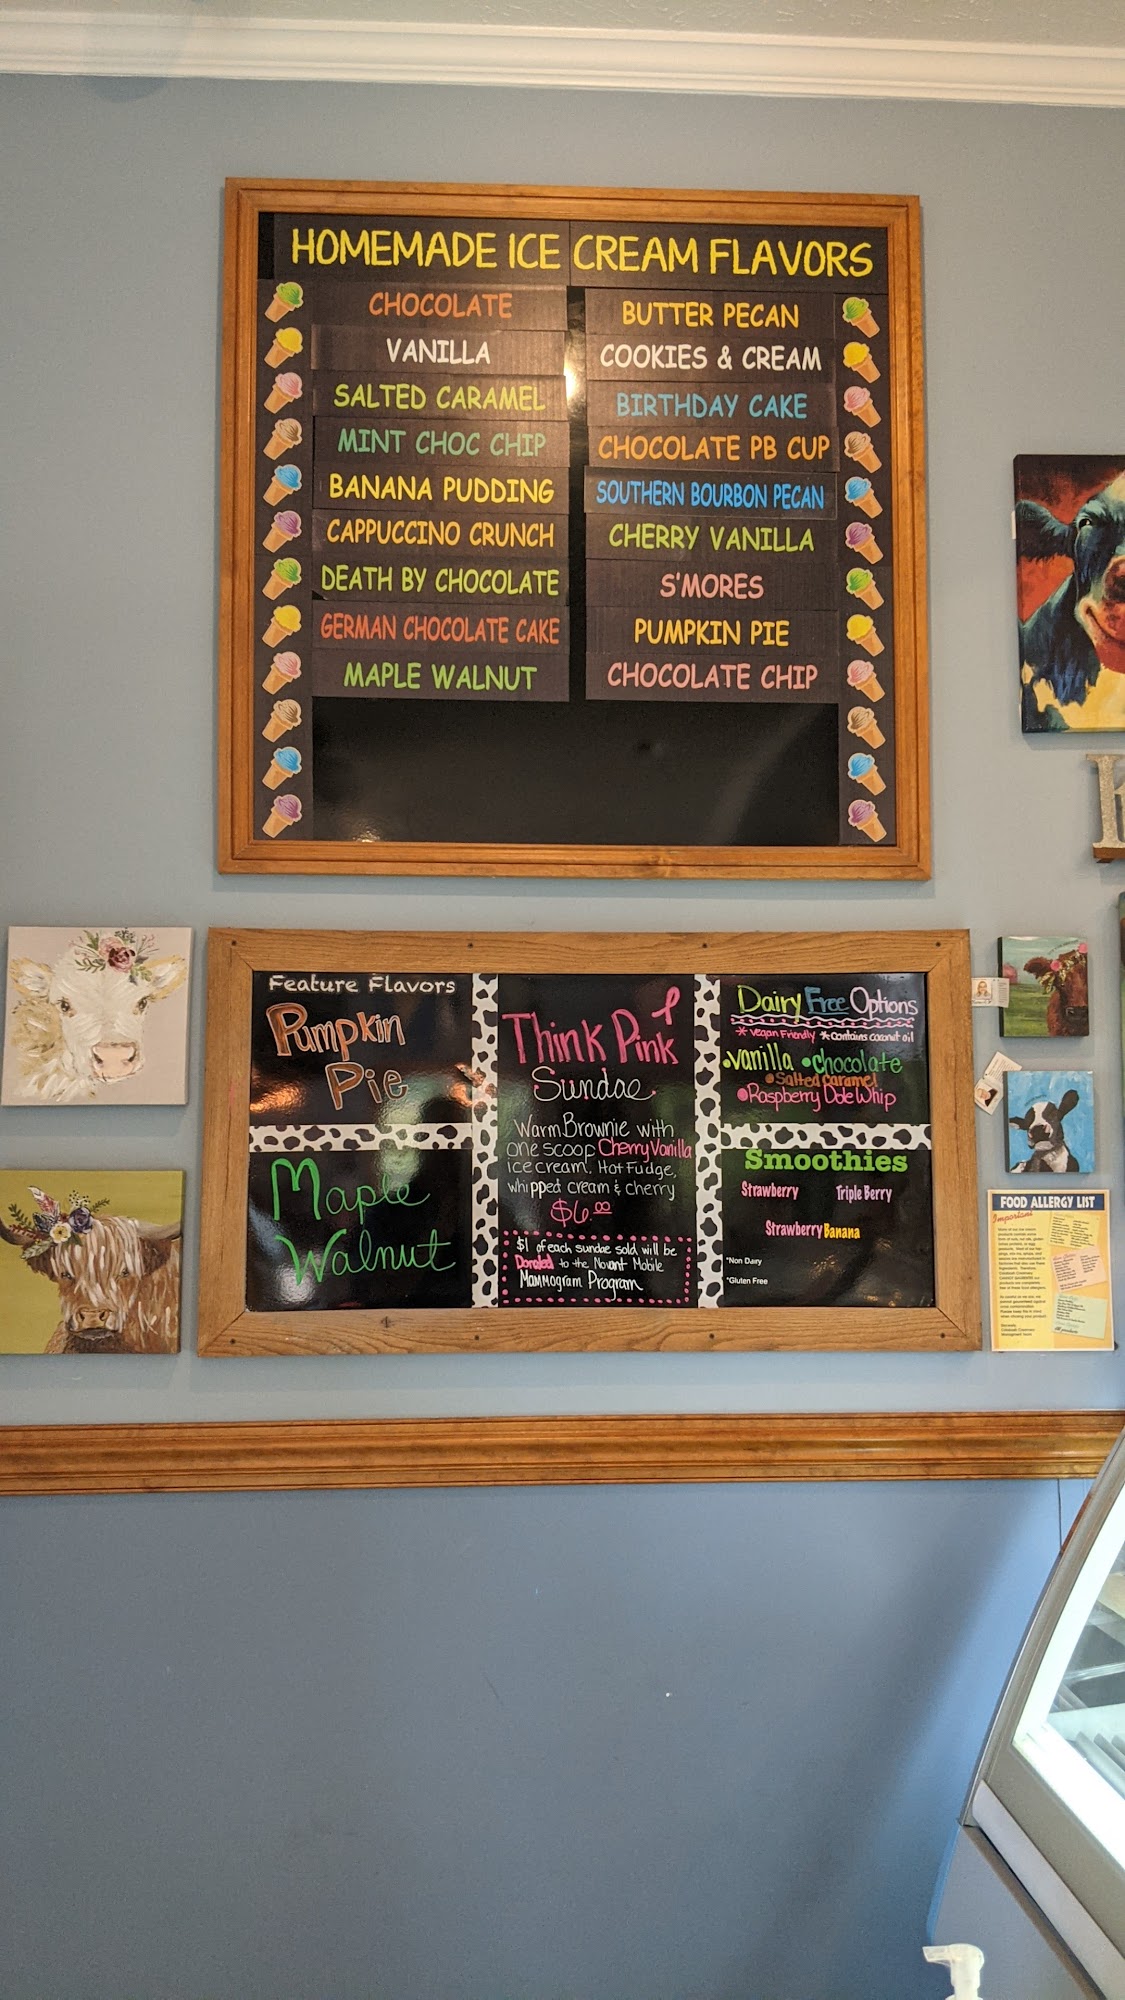 HOMEMADE ICE CREAM FLAVORS
CHOCOLATE
VANILLA
SALTED CARAMEL
MINT CHOC CHIP
BANANA PUDDING
CAPPUCCINO CRUNCH
DEATH BY CHOCOLATE
GERMAN CHOCOLATE CAKE
MAPLE WALNUT
BUTTER PECAN
COOKIES & CREAM
BIRTHDAY CAKE
CHOCOLATE PB CUP
SOUTHERN BOURBON PECAN
CHERRY VANILLA
S'MORES
PUMPKIN PIE
CHOCOLATE CHIP
Feature Flavors
Pumpkin
Pie
Maple
Walnut
Think Pink
Sundae
Warm Brownie with
one scoop Cherry Vanilla
ice cream. Hot Fudge,
whipped cream & cherry
$6.00
$1 of each sundae sold will be
Donated to the Novant Mobile
Mammogram Program
Dairy Free Options
*Vegan Friendly *contains coconut oil
•vanilla •chocolate
•Salted caramel
•Raspberry Dole Whip
Smoothies
Strawberry Triple Berry
Strawberry Banana
*Non Dairy
*Gluten Free
FOOD ALLERGY LIST
Important